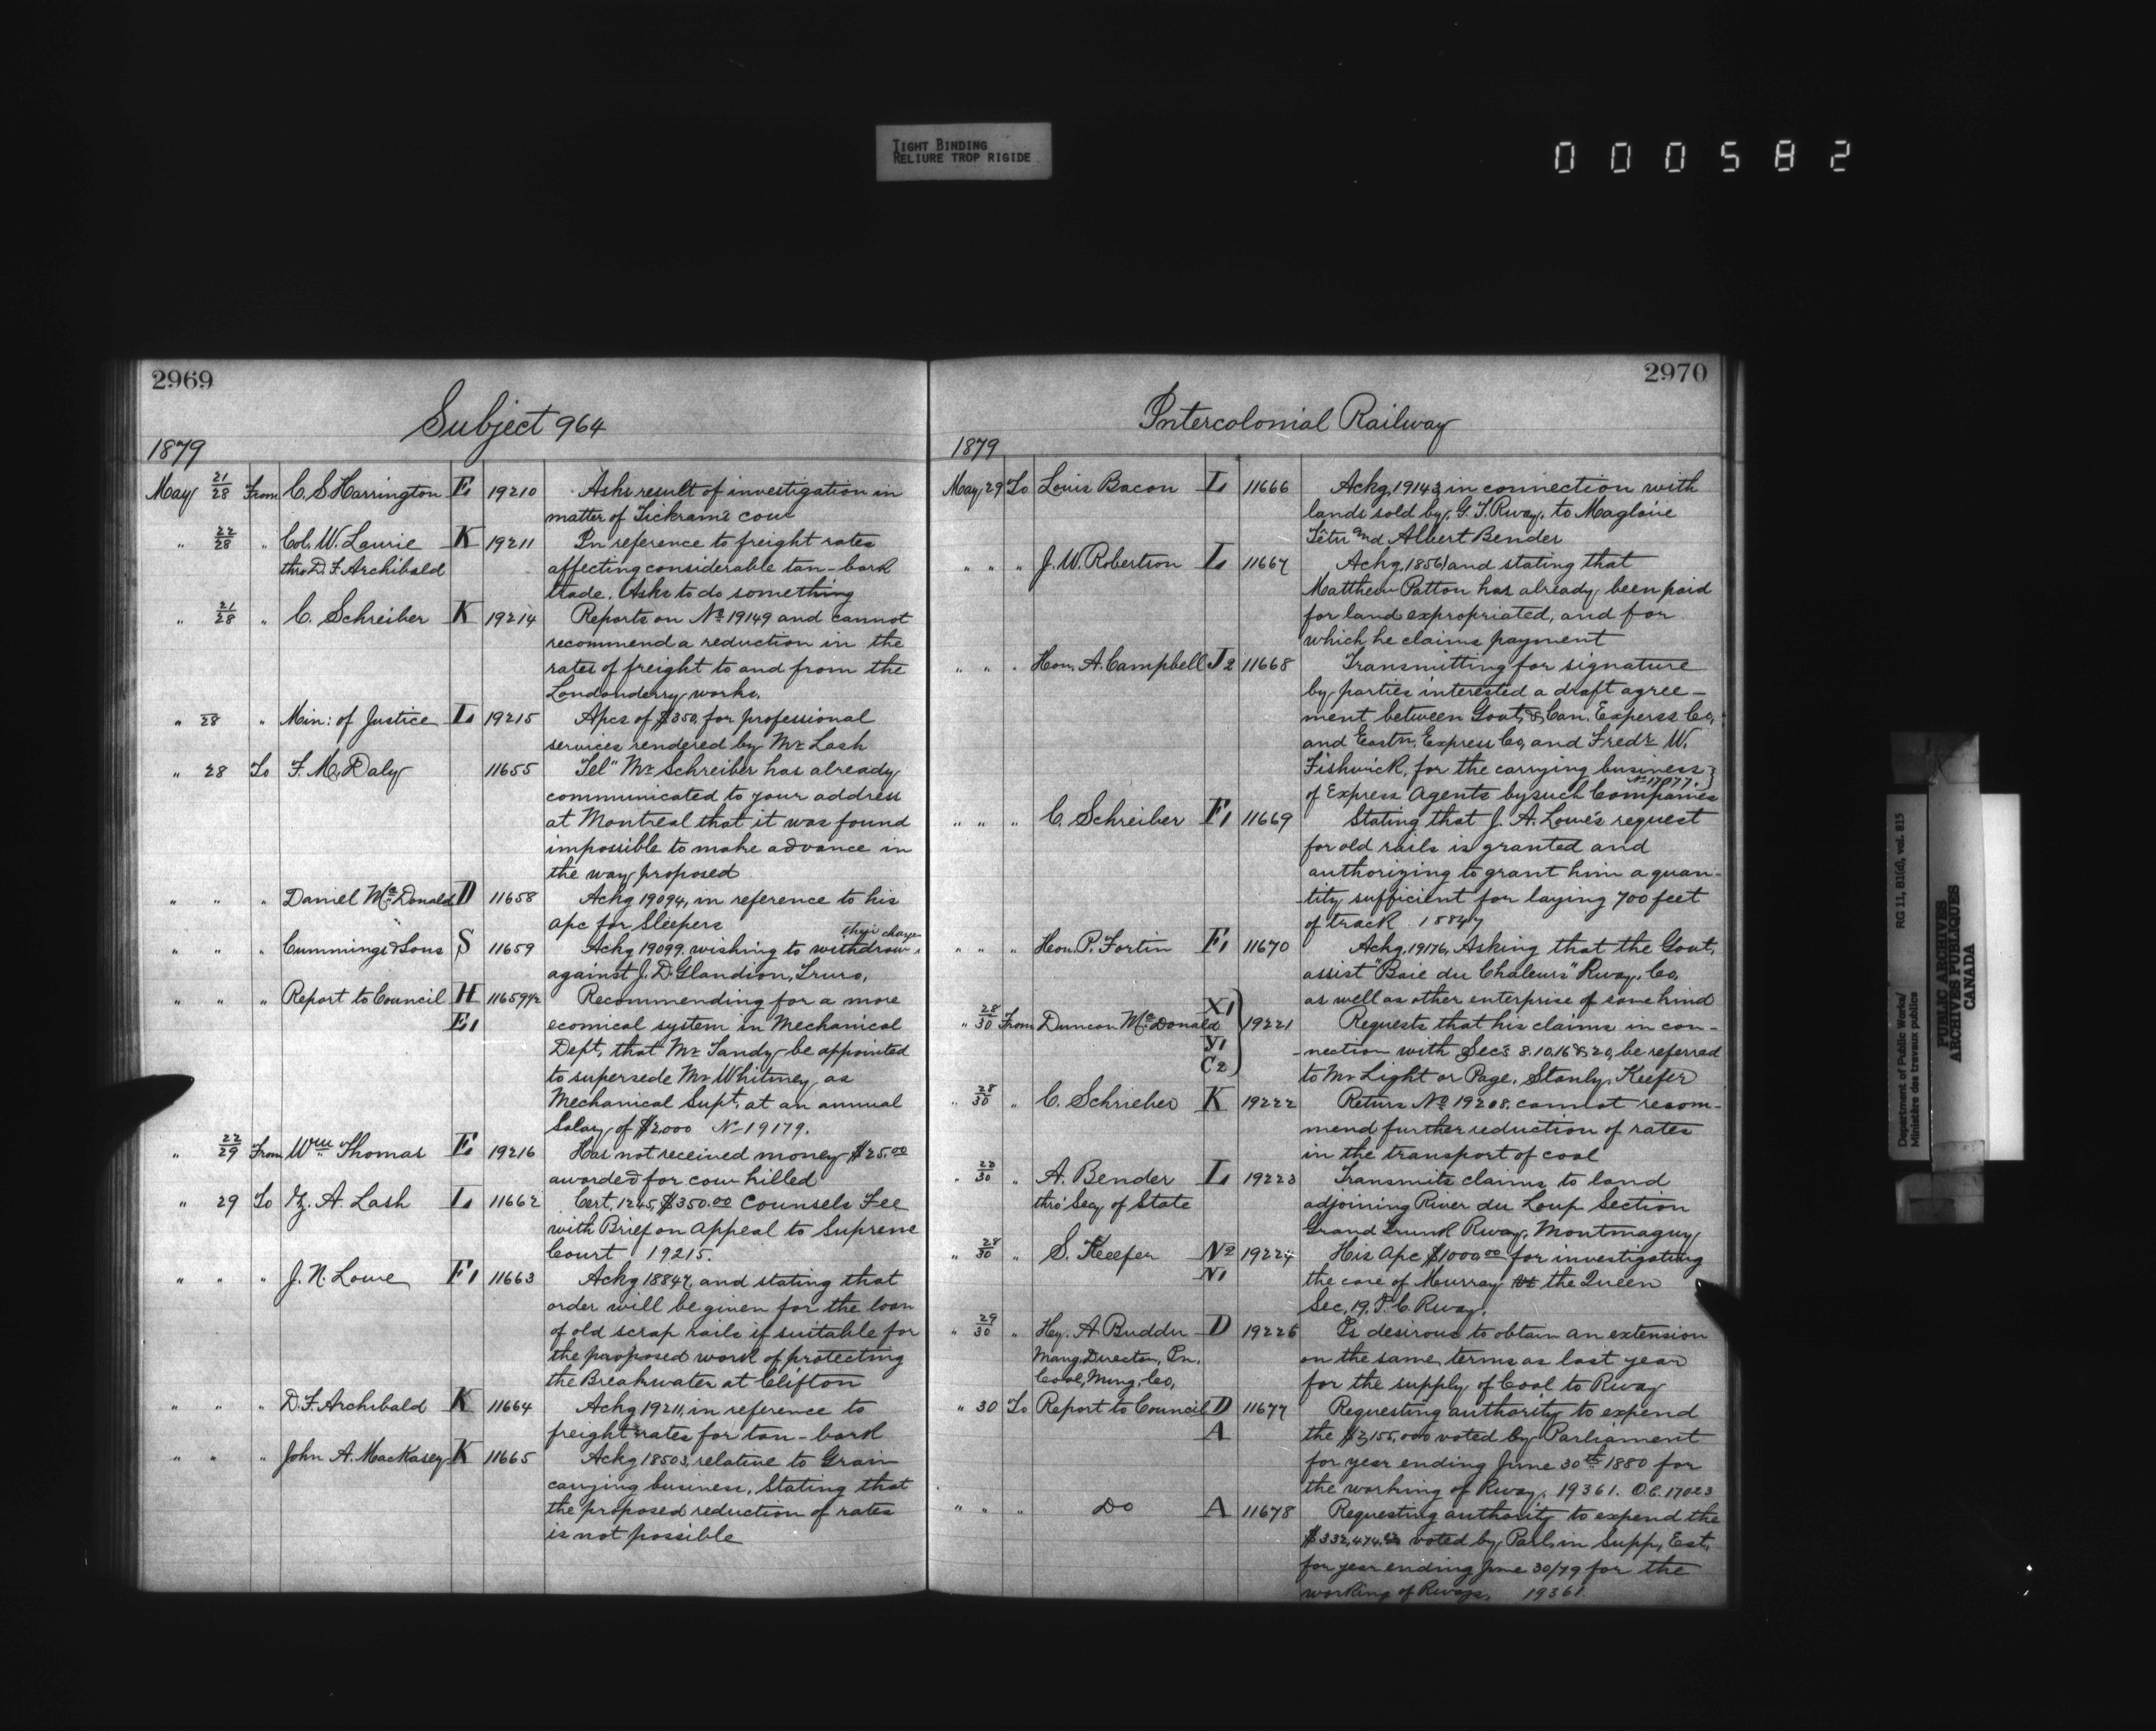 TIGHT BINDING
RELIURE TROP RIGIDE
000582
2969
Subject 964
1879
May 21/28 From C. S. Harrington E1 19210 Asks result of investigation in
matter of cow
" 22/28 " Col. W. Laurie K 19211 In reference to freight rates
thro D. F. Archibald affecting considerable tan-bark
trade. Asks to do something
" 21/28 " C. Schreiber K 19214 Reports on No 19149 and cannot
recommend a reduction in the
rates of freight to and from the
Londonderry works.
" 28 " Min: of Justice L 19215 Apcs of $350, for professional
services rendered by Mr Lash
" 28 To F. M. Daly 11655 Tel" Mr Schreiber has already
communicated to your address
at Montreal that it was found
impossible to make advance in
the way proposed
" " " Daniel McDonald D 11658 Ackg 19094, in reference to his
apc for sleepers
" " " Cummings & Sons S 11659 Ackg 19099, wishing to withdraw their charge
against J. D. Glandion, Truro,
" " " Report to Council H 11659 1/2 Recommending for a more
E1 ecomical system in Mechanical
Dept, that Mr Tandy be appointed
to supersede Mr Whitney, as
Mechanical Supt, at an annual
Salary of $2,000 No 19179.
" 22/29 From Wm Thomas E1 19216 Has not received money $25.00
awarded for cow killed
" 29 To Z. A. Lash L 11662 Cert, 1245, $350.00 Counsels Fee
with Brief on Appeal to Supreme
Court 19215.
" " " J. N. Lowe F1 11663 Ackg 18847, and stating that
order will be given for the loan
of old scrap rails if suitable for
the proposed work of protecting
the Breakwater at Clifton
" " " D. F. Archibald K 11664 Ackg 19211, in reference to
freight rates for tan-bark
" " " John A. MacKasey K 11665 Ackg 18503, relative to Grain
carrying business, Stating that
the proposed reduction of rates
is not possible
2970
Intercolonial Railway
1879
May 29 To Louis Bacon L 11666 Ackg, 19142, in connection with
lands sold by, G. T. Rway, to Magloire
Têtu and Albert Bender
" " " J. W. Robertson L 11667 Ackg, 18561 and stating that
Matthew Patton has already been paid
for land expropriated, and for
which he claims payment
" " " Hon. A. Campbell J2 11668 Transmitting for signature
by parties interested a draft agree-
ment between Govt, & Can. Express Co,
and Eastn. Express Co, and Fredr W.
Fishwick, for the carrying business
No 17077.
of Express Agents by such Companies
" " " C. Schreiber F1 11669 Stating that J. A. Lowe's request
for old rails is granted and
authorizing to grant him a quan-
-tity sufficient for laying 700 feet
of track 18847
" " " Hon. P. Fortin F1 11670 Ackg, 19176, Asking that the Govt,
assist "Baie du Chaleurs" Rway, Co,
as well as other enterprise of same kind
" 28/30 From Duncan McDonald X1 Y1 C2 19221 Requests that his claims in con-
-nection with Secs 8.10.16 & 20, be referred
to Mr Light or Page, Stanly, Keefer
" 28/30 " C. Schrieber K 19222 Returs No 19208, cannot recom-
mend further reduction of rates
in the transport of coal
" 22/30 " A. Bender L 19223 Transmits claims to land
thro' Secy of State adjoining River du Loup Section
Grand Trunk Rway, Montmaguy
" 28/30 " S. Keefer No 19224 His Apc $1000.00 for investigating
N1 the case of Murray vs the Queen
Sec, 19, I. C. Rway,
" 29/30 " Hy. A Budden D 19226 Is desirous to obtain an extension
Mang. Director, In. on the same terms as last year
Coal, Ming, Co, for the supply of Coal to Rway
" 30 To Report to Council D 11677 Requesting authority to expend
A the $2,155,000 voted by Parliament
for year ending June 30th 1880 for
the working of Rway, 19361. O.C. 17023
" " " Do A 11678 Requesting authority to expend the
$332,474. voted by Parl, in Supp, Est,
for year ending June 30/79 for the
working of Rways, 19361.
Department of Public Works/ RG 11, B1(d), vol. 815
Ministère des travaux publics
PUBLIC ARCHIVES
ARCHIVES PUBLIQUES
CANADA